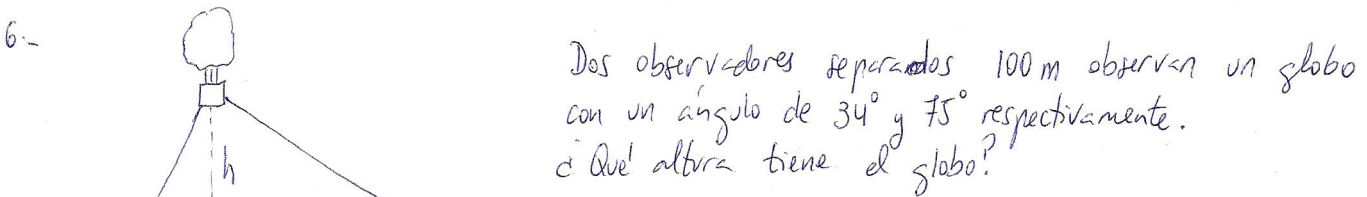 6.-
h
Dos observadores separados 100 m observan un globo
con un ángulo de 34° y 75° respectivamente.
¿Qué altura tiene el globo?